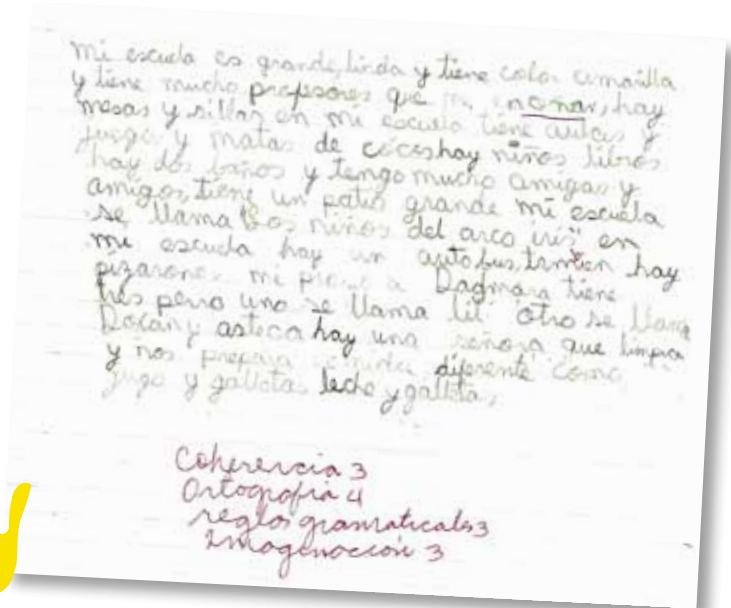 mi escuela es grande, linda y tiene color amarilla
y tiene mucho profesores que hay
mesas y sillas en mi escuela tiene aulas y
juego y matas de cocos hay niños libros
hay dos baños y tengo mucho amigas y
amigos, tiene un patio grande mi escuela
se llama "Los niños del arco iris" en
mi escuela hay un autobus, hay
pizarones mi Dagmara tiene
tres perro uno se llama otro se llama
asteca hay una señora que limpia
y nos prepara diferente como
jugo y galleta leche y galleta,
Coherencia 3
Ortografia 4
reglas gramaticales 3
Imaginación 3